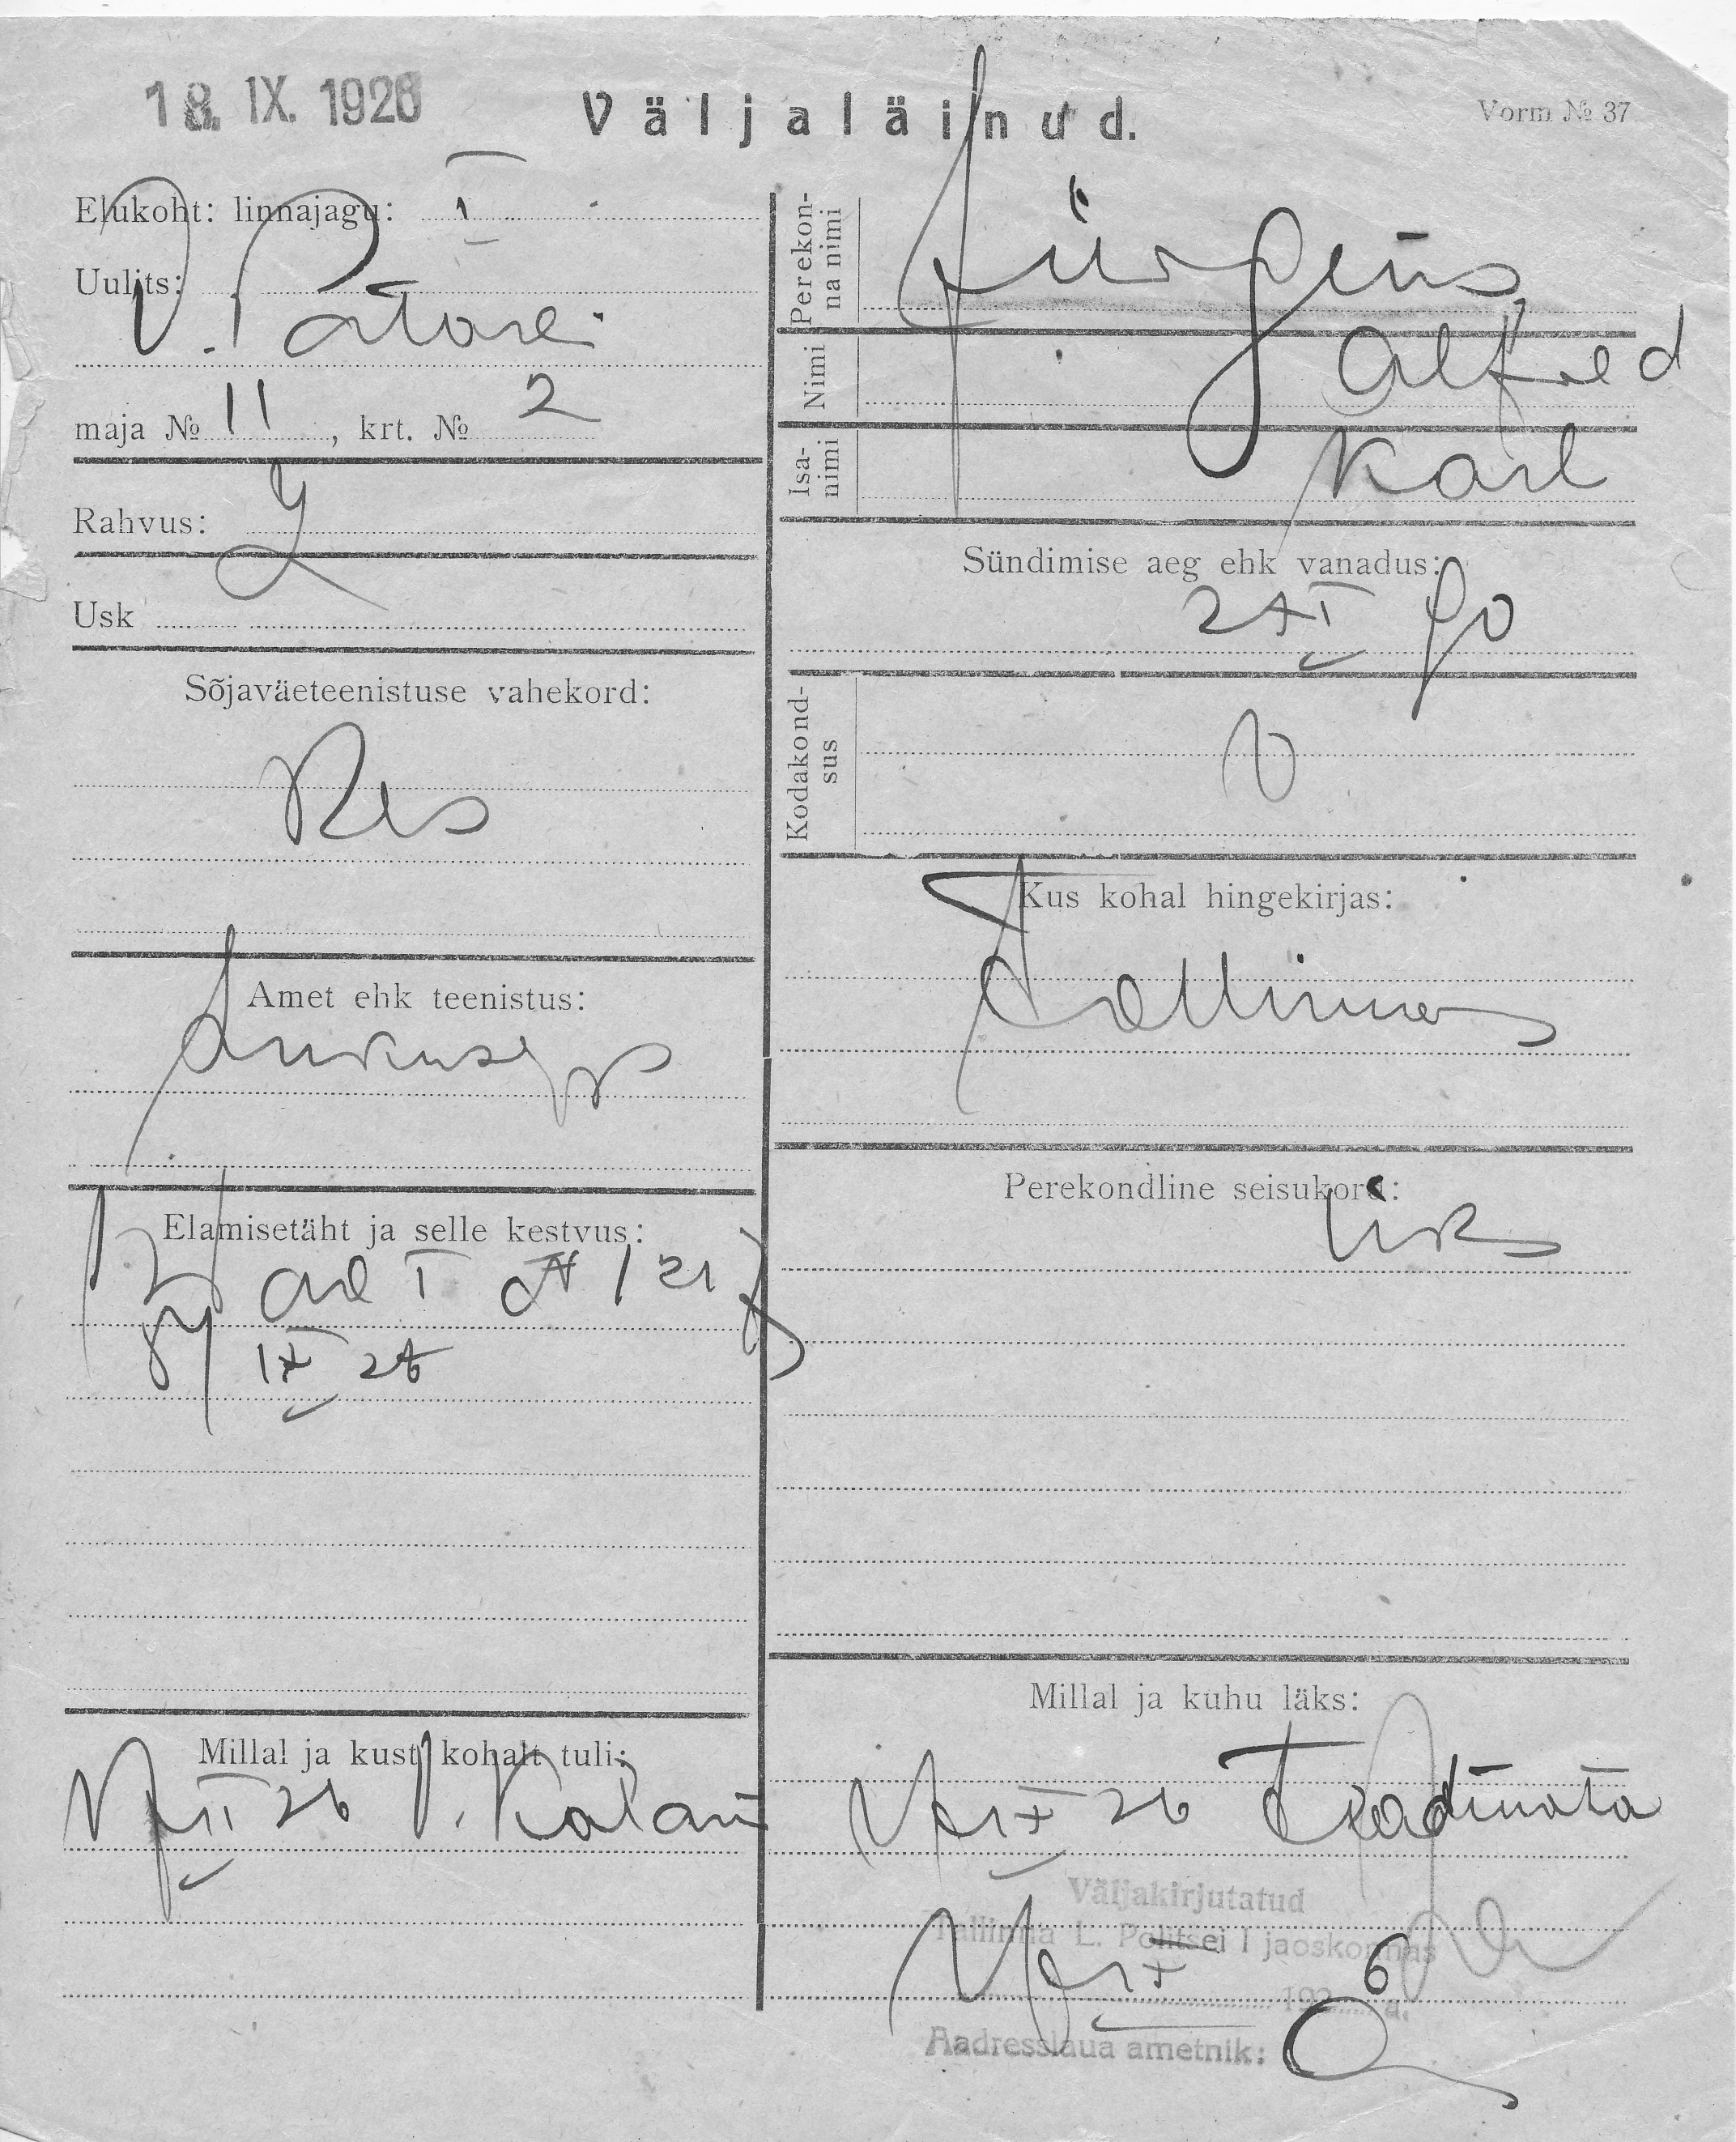 18. IX. 1926
Väljaläinud.
Vorm № 37
Elukoht: linnajagu: I
Uulits:
V. Patarei
maja № 11, krt. № 2
Rahvus:
Usk
Sõjaväeteenistuse vahekord:
Res
Amet ehk teenistus:
Lukusepp
Elamisetäht ja selle kestvus:
IX 26
Millal ja kust kohalt tuli:
II 26 V. Kalam
Perekonna nimi
Jürgens
Nimi
Alfred
Isanimi
Karl
Sündimise aeg ehk vanadus:
Kodakondsus
Kus kohal hingekirjas:
Tallinnas
Perekondline seisukord:
Üks
Millal ja kuhu läks:
IX 26 Teadmata
Väljakirjutatud
Tallinna L. Politsei I jaoskonnas
IX 1926 a.
Aadresslaua ametnik: